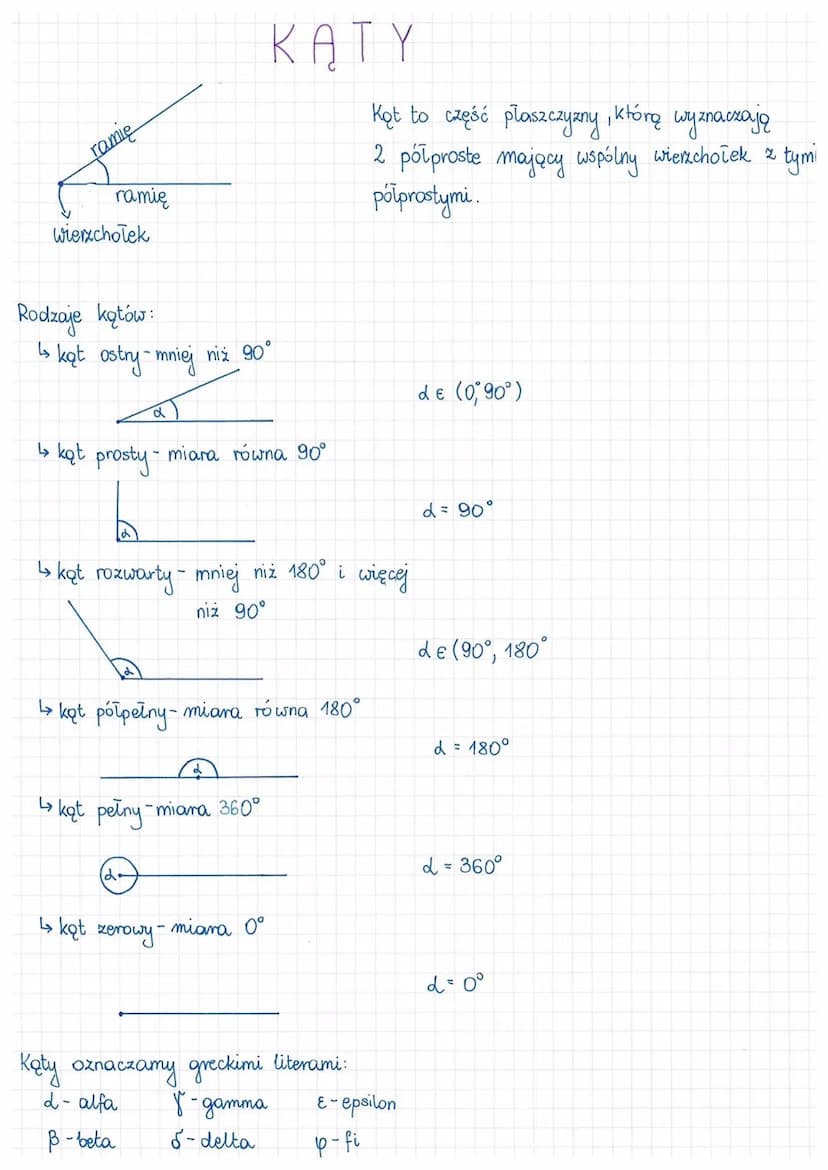 KĄTY
ramię
ramię
wierzchołek
Kąt to część płaszczyzny, którą wyznaczają
2 półproste mający wspólny wierzchołek z tymi
półprostymi.
Rodzaje kątów:
↳ kąt ostry - mniej niż 90°
α
α ∈ (0°, 90°)
↳ kąt prosty - miara równa 90°
α
α = 90°
↳ kąt rozwarty - mniej niż 180° i więcej
niż 90°
α
α ∈ (90°, 180°
↳ kąt półpełny - miara równa 180°
α
α = 180°
↳ kąt pełny - miara 360°
α
α = 360°
↳ kąt zerowy - miara 0°
α = 0°
Kąty oznaczamy greckimi literami:
α - alfa γ - gamma ε - epsilon
β - beta δ - delta φ - fi